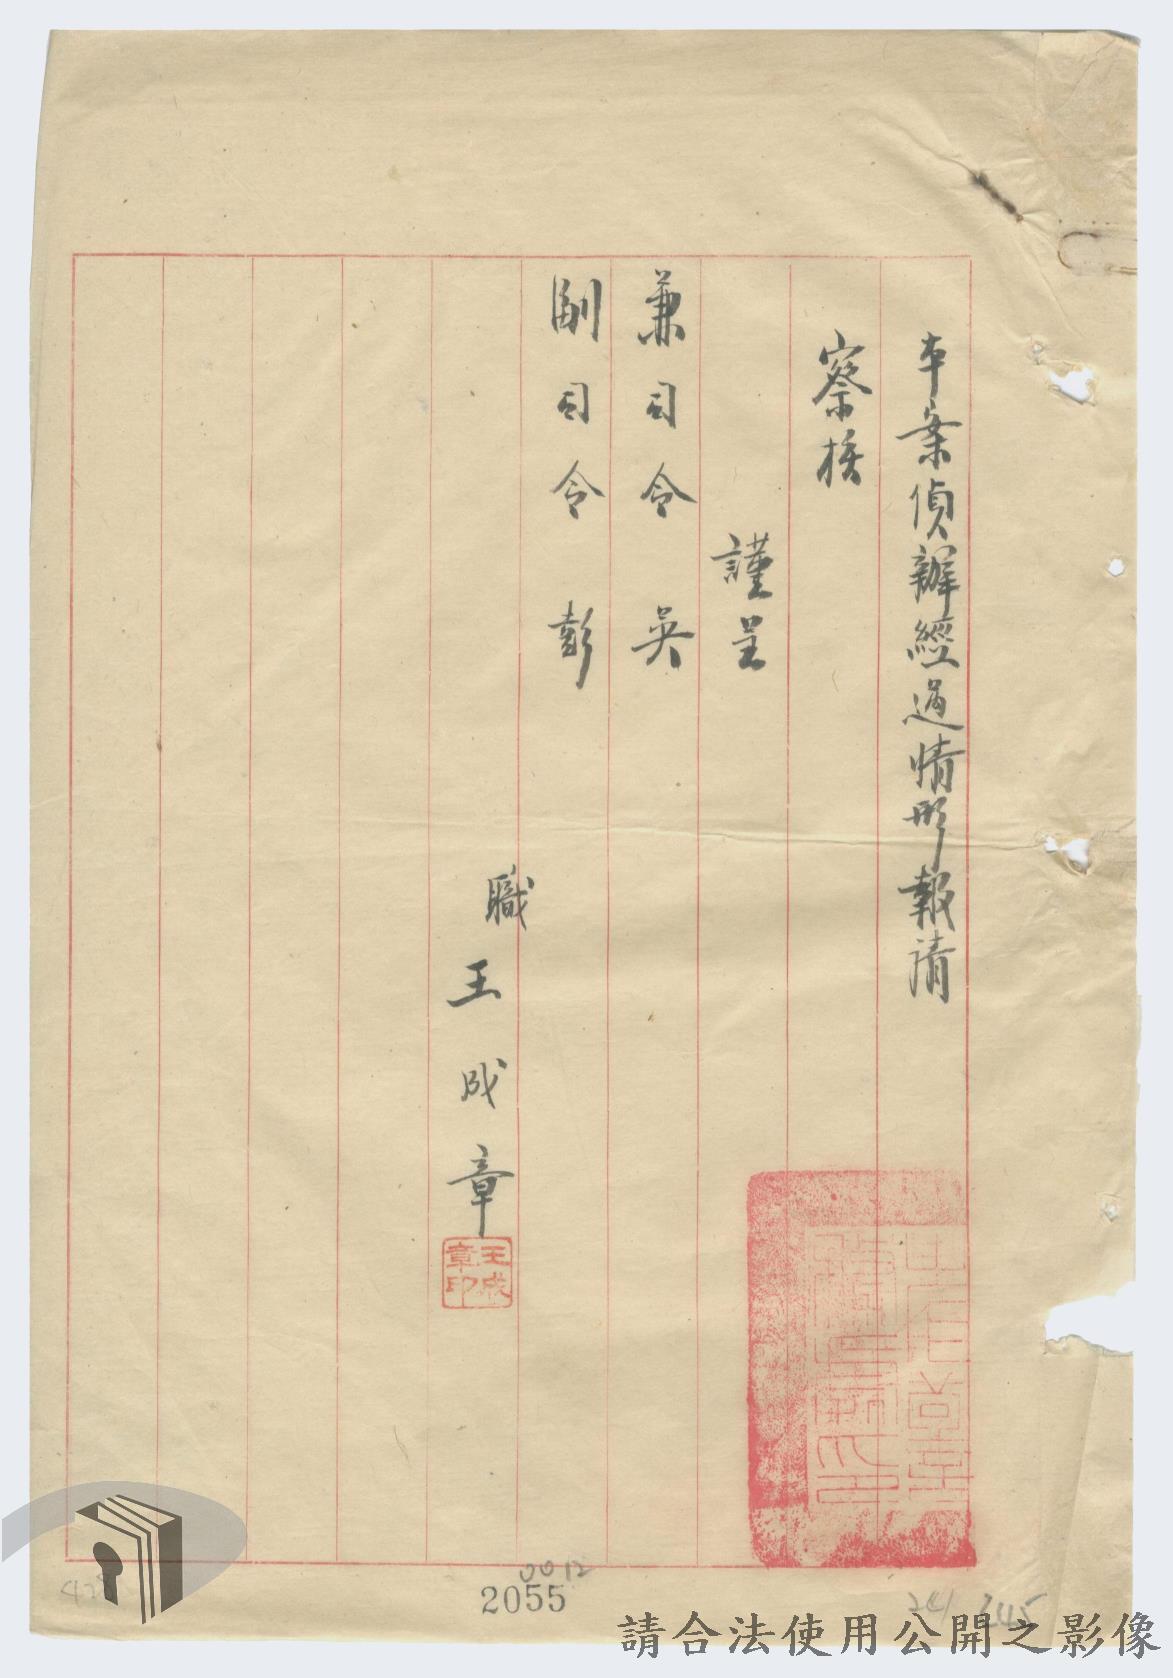 本案偵辦經過情形報請
察核
謹呈
兼司令 吳
副司令 彭
職 王成章
王成
章印
0012
2055
241 245
請合法使用公開之影像